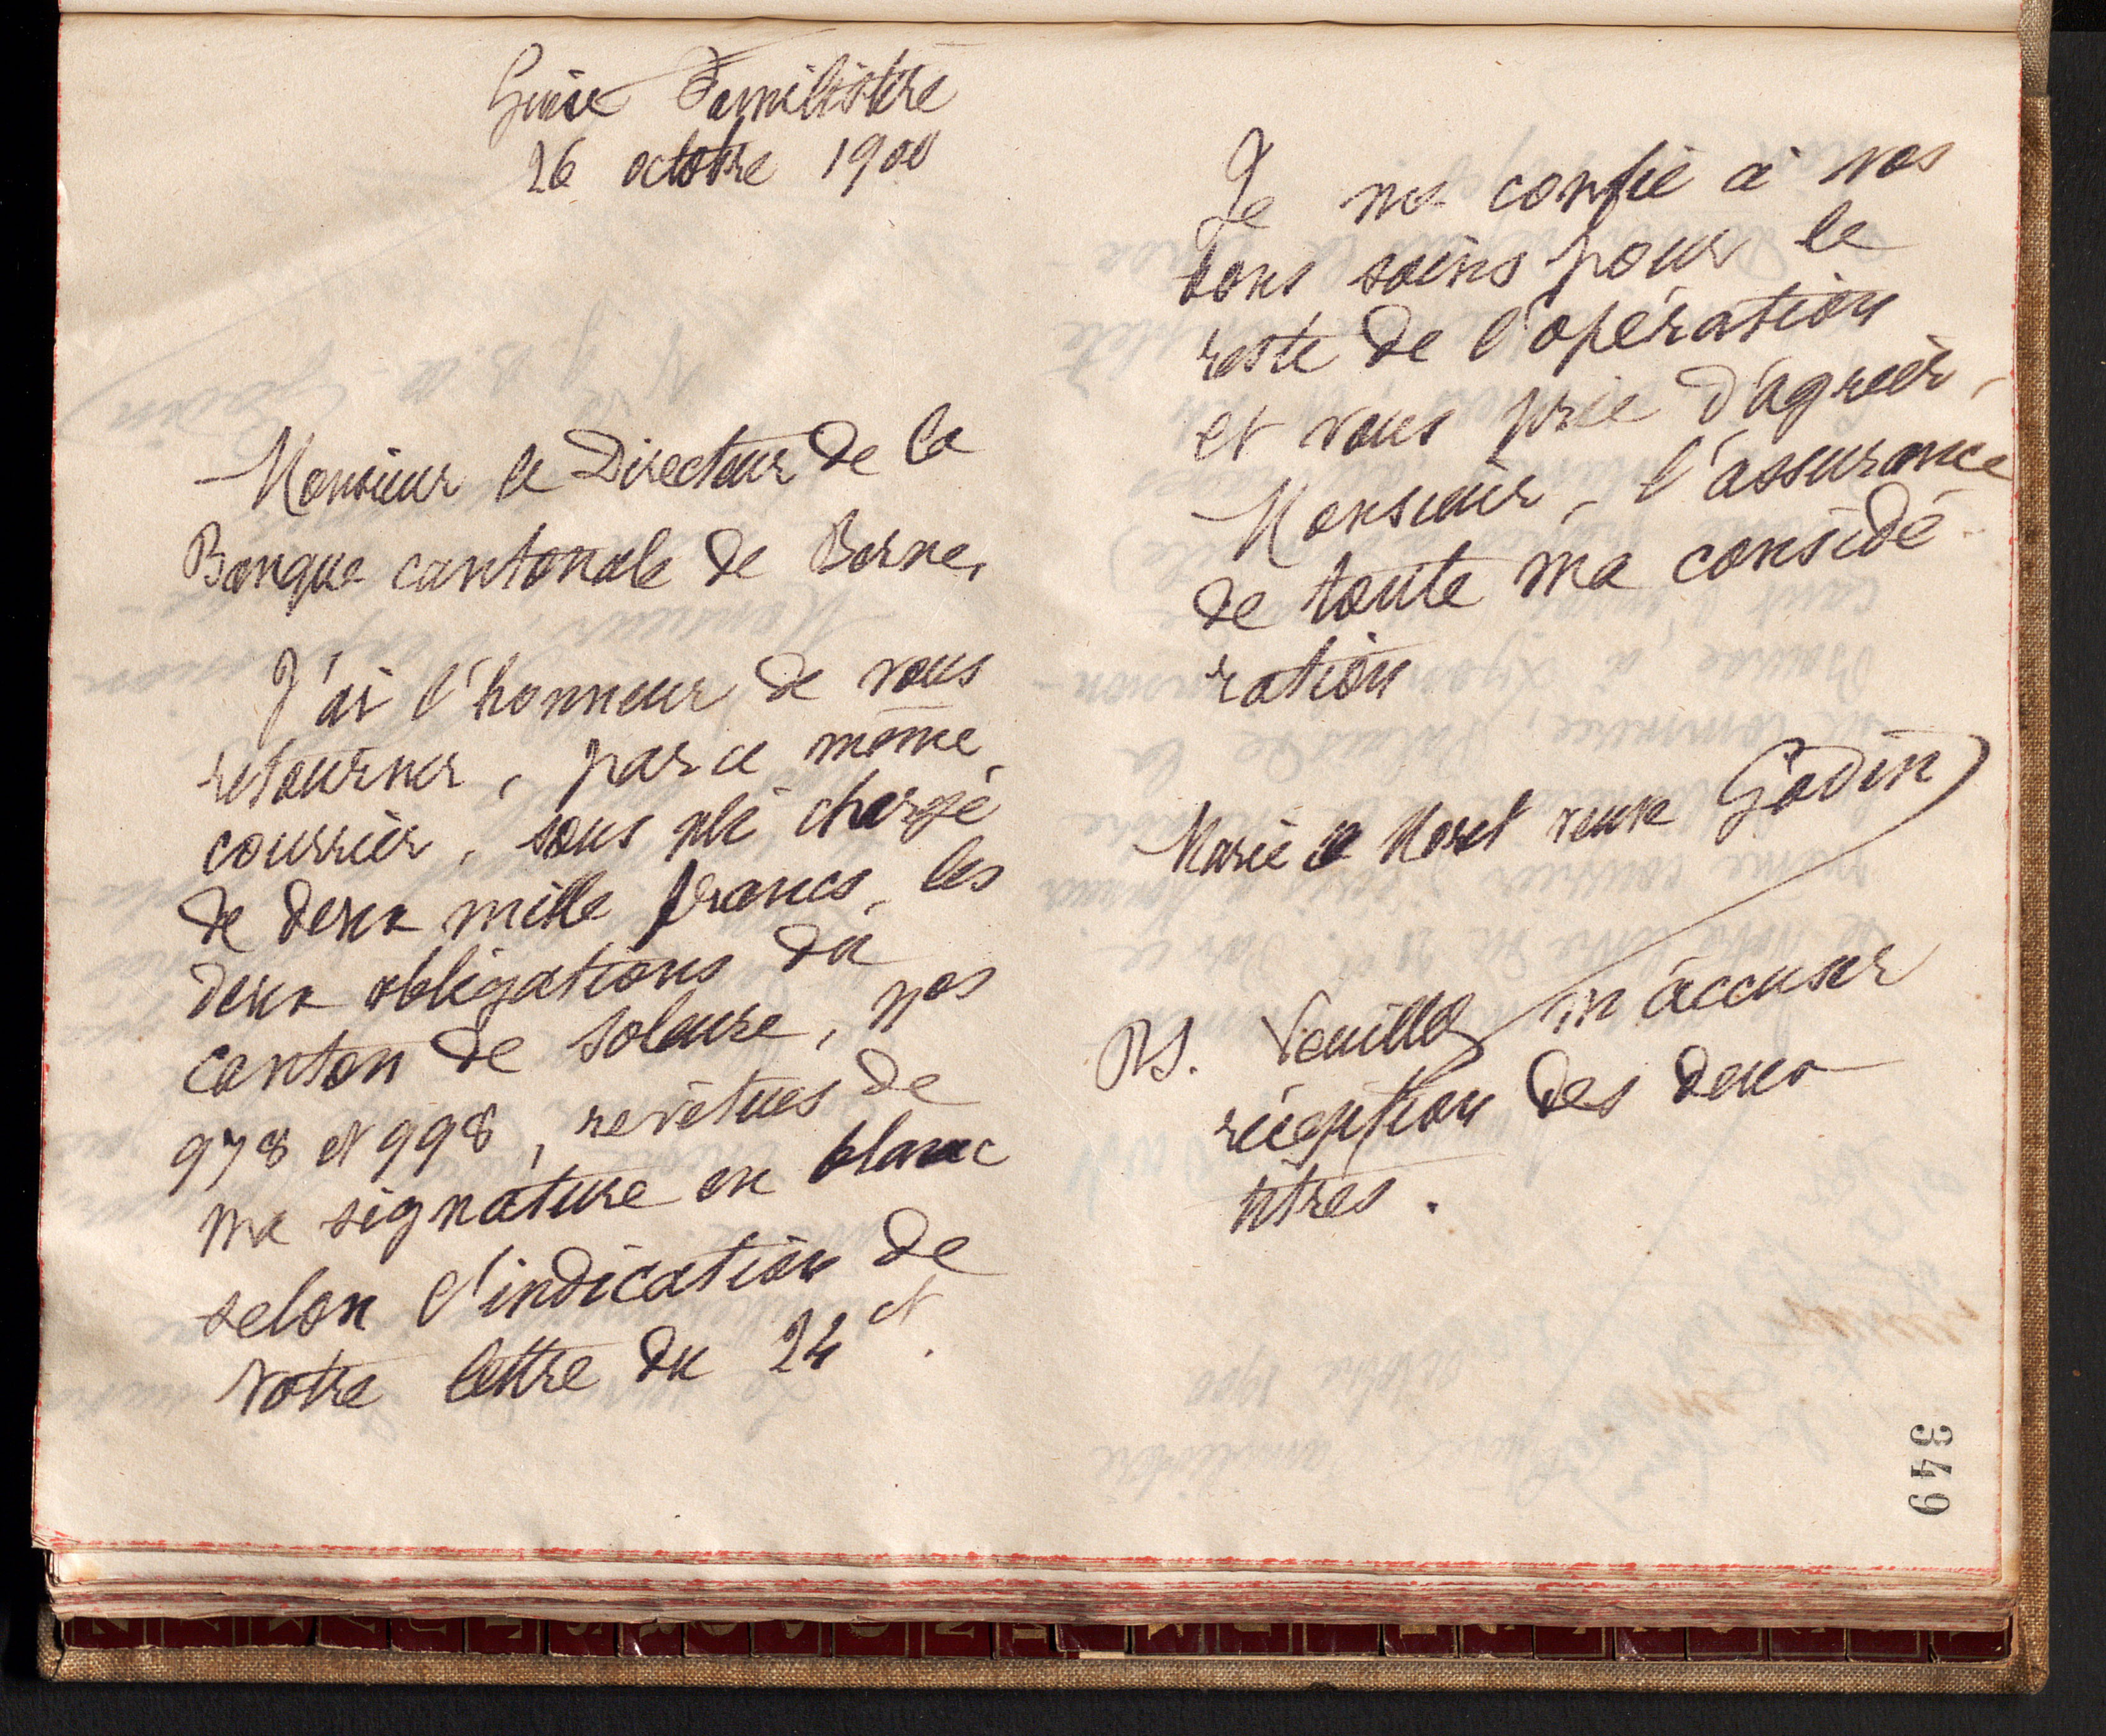 Guise Familistère
26 octobre 1900
Monsieur le Directeur de la
Banque cantonale de Berne,
J'ai l'honneur de vous
retourner, par ce même
courrier, sous pli chargé
de deux mille francs, les
deux obligations du
canton de Soleure, nos
978 et 998, revêtues de
ma signature en blanc
selon l'indication de
votre lettre du 24 ct.
Je me confie à vos
bons soins pour le
reste de l'opération
et vous prie d'agréer,
Monsieur, l'assurance
de toute ma considé-
ration
Marie Moret veuve Godin
PS. Veuillez m'accuser
réception des deux
titres.
349